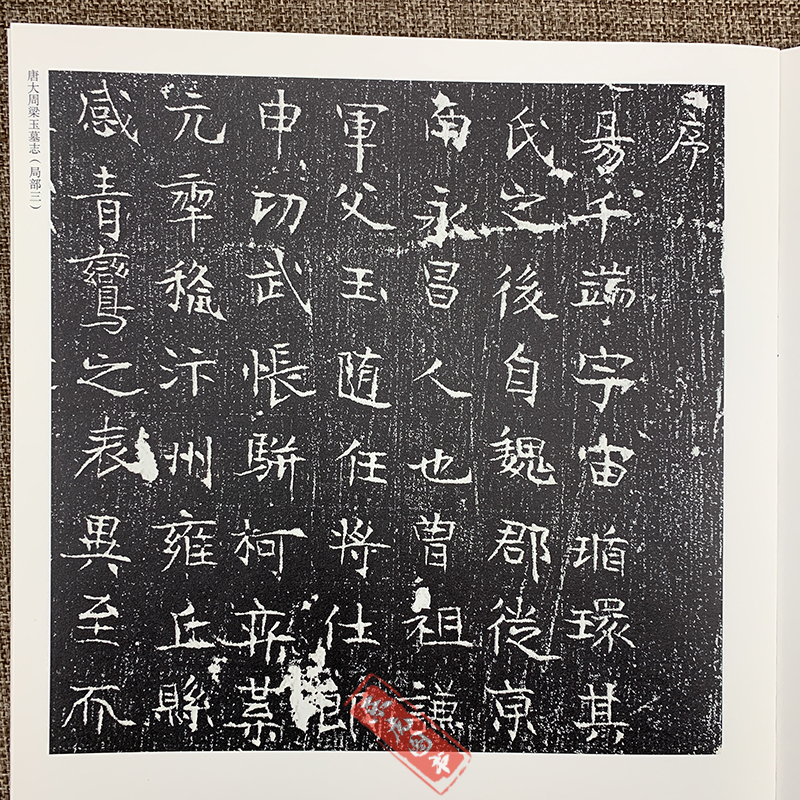 唐大周梁玉墓志（局部三）
序
易千端宇宙循環其
氏之後自魏郡從京
南永昌人也曾祖謙
軍父玉隨任將仕郎
申切武帳駢柯弈葉
元率稱汴州雍丘縣
感青鸞之表異至而